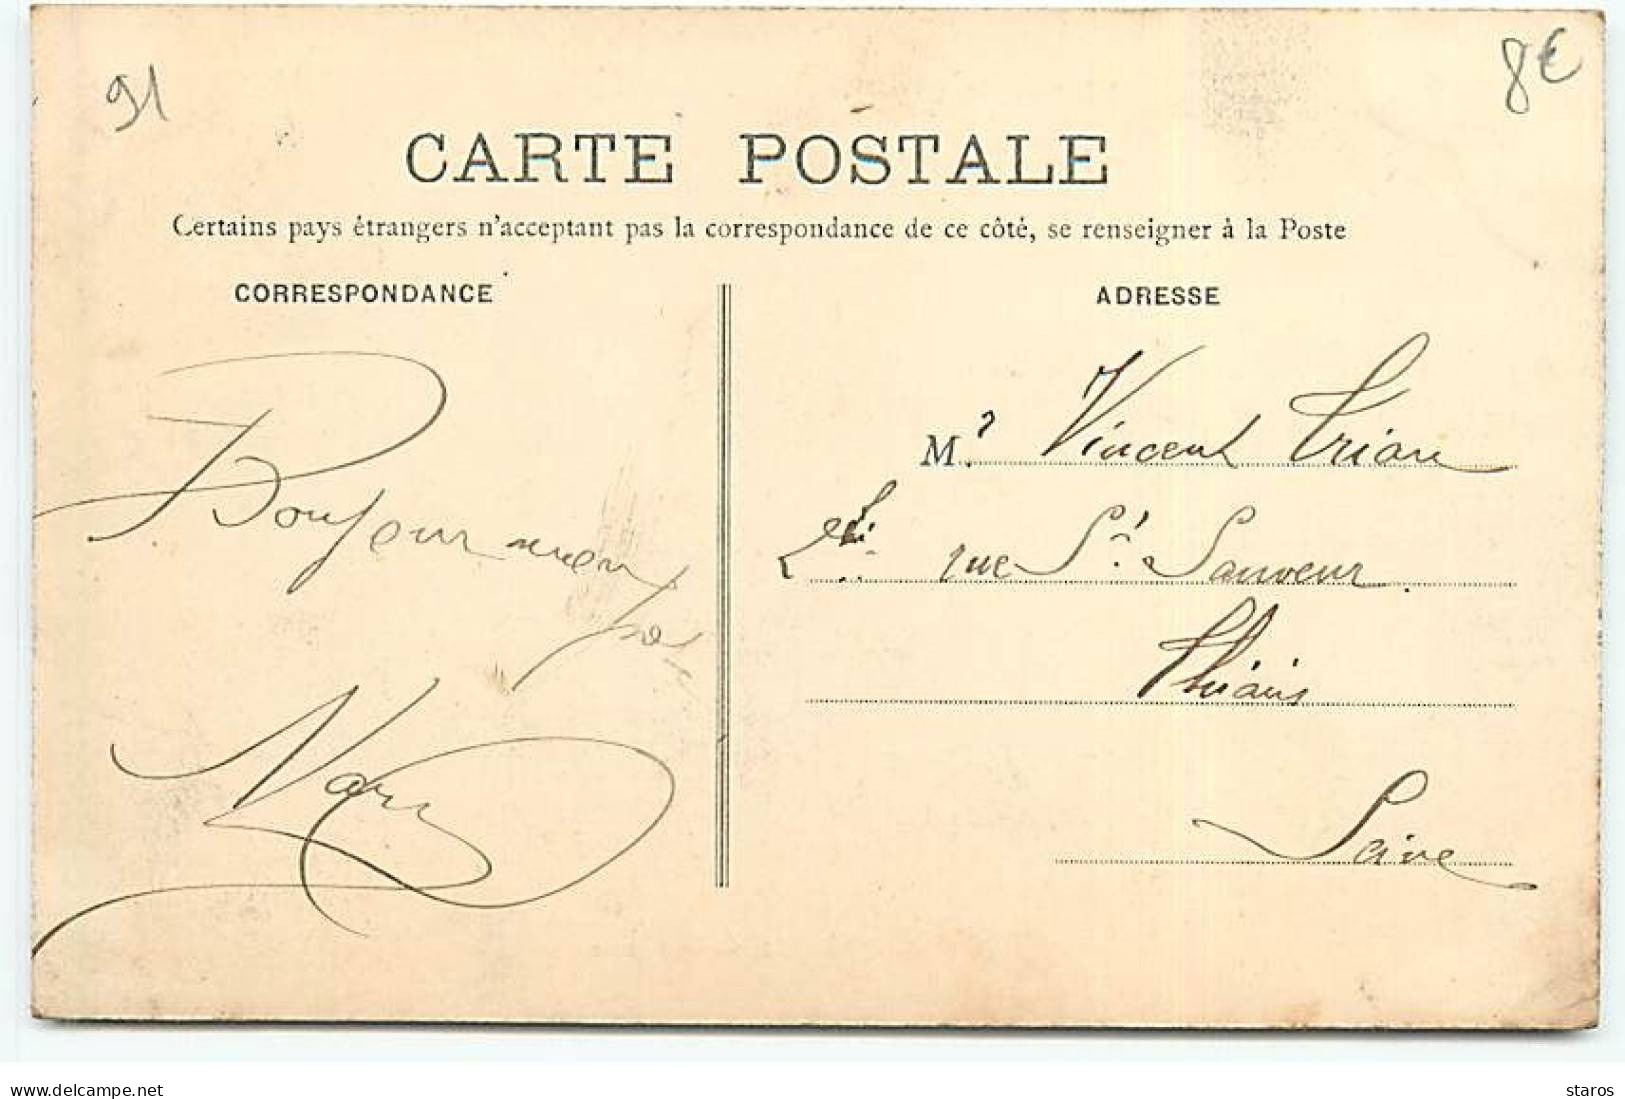 91
8€
CARTE POSTALE
Certains pays étrangers n'acceptant pas la correspondance de ce côté, se renseigner à la Poste
CORRESPONDANCE
ADRESSE
Bonjour
M.r Vincent Trian
rue St. Sauveur
Thiais
Seine
delcampe.net
staros